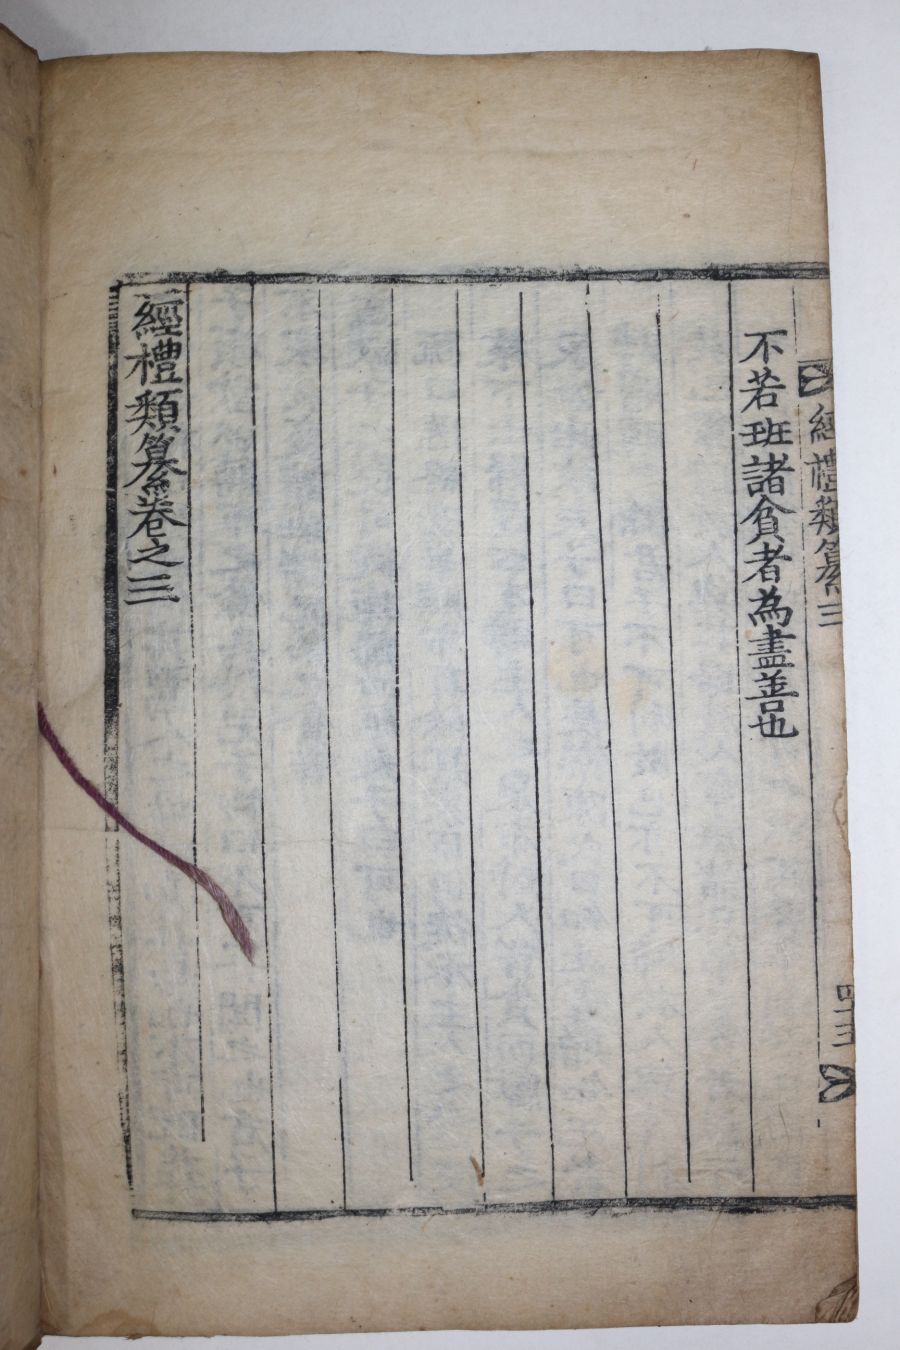 經禮類纂三
四十三
不若班諸貧者為盡善也
經禮類纂卷之三